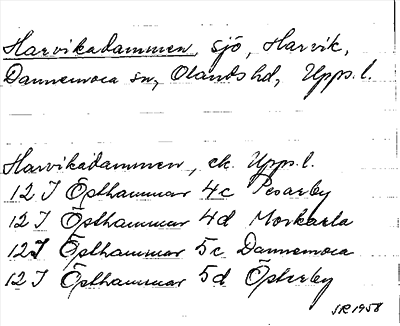 Harvikadammen, sjö, Harvik,
Dannemora sn, Olands hd, Upps. l.
Harvikadammen, ek. Upps. l.
12 I Östhammar 4c Pesarby
12 I Östhammar 4d Morkarla
12 I Östhammar 5c Dannemora
12 I Östhammar 5d Österby
SR 1958